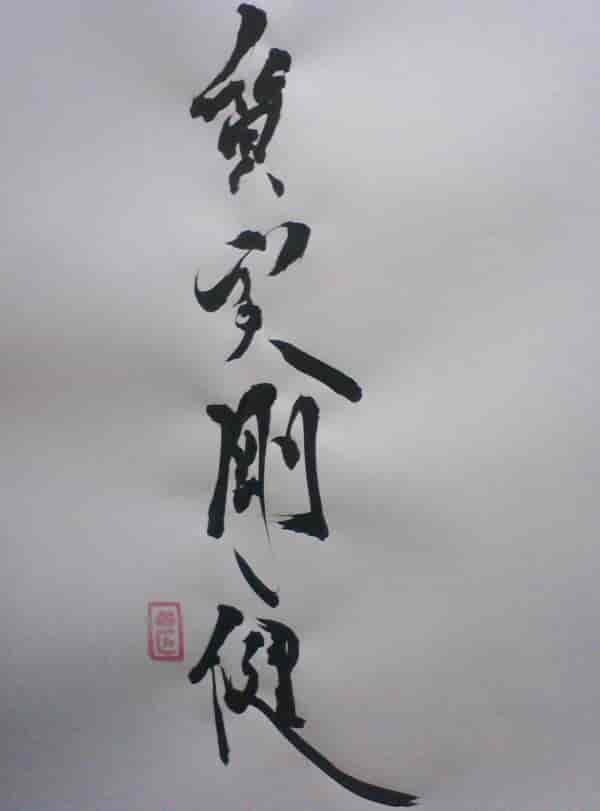 質実剛健